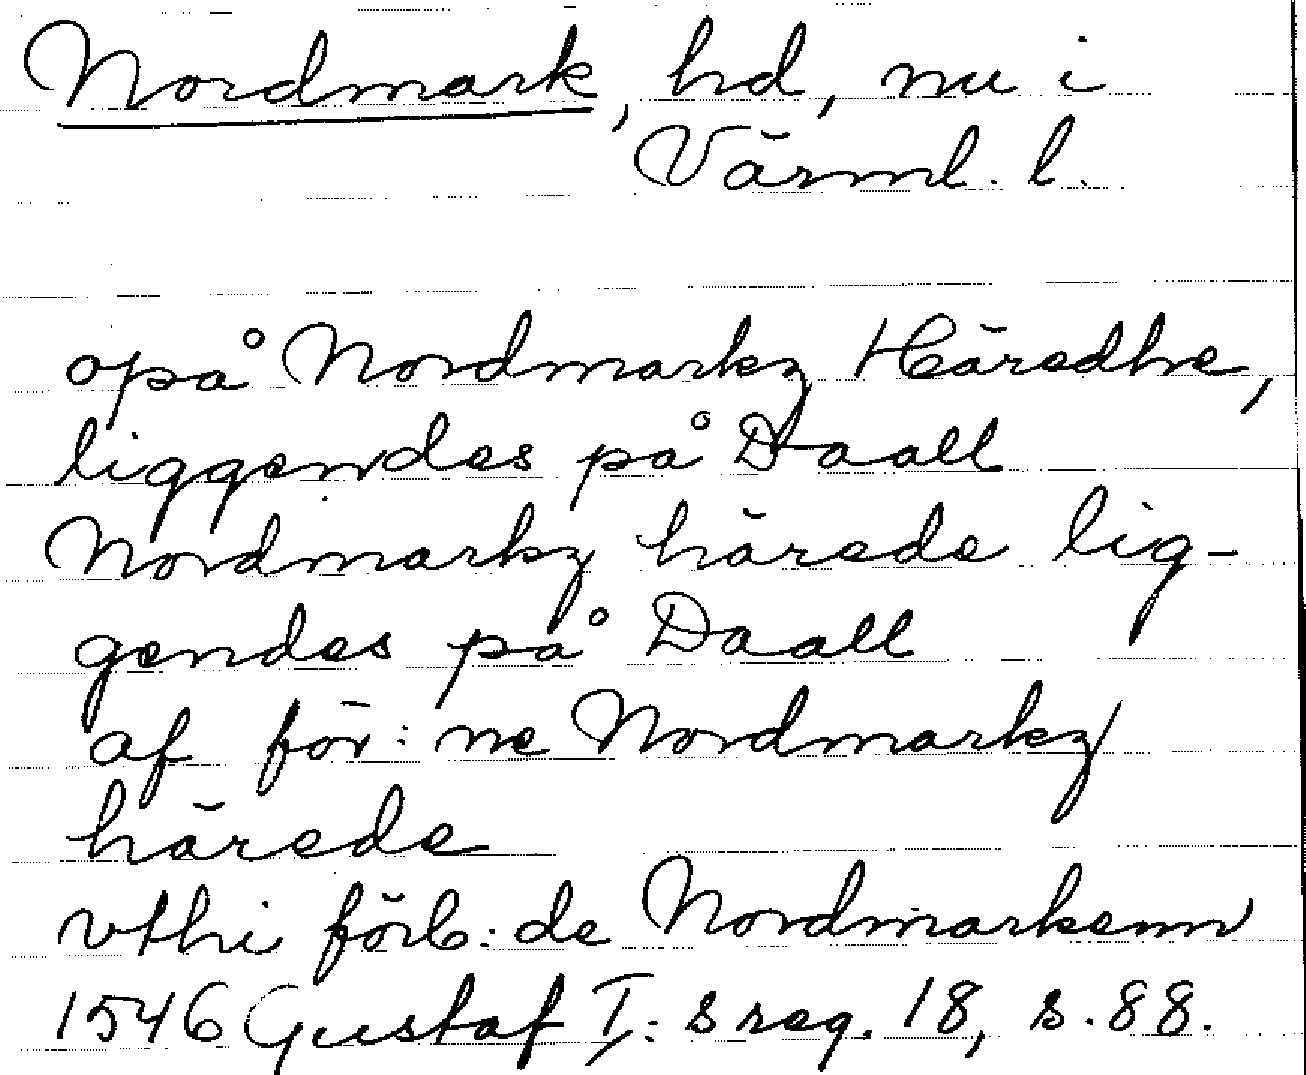 Nordmark, hd, nu i
Värml. l.
opå Nordmarkz Häredhe,
liggendes på Daall
Nordmarkz härede lig-
gendes på Daall
af för: ne Nordmarkz
härede
vthi förb: de Nordmarkenn
1546 Gustaf I: s reg. 18, s. 88.